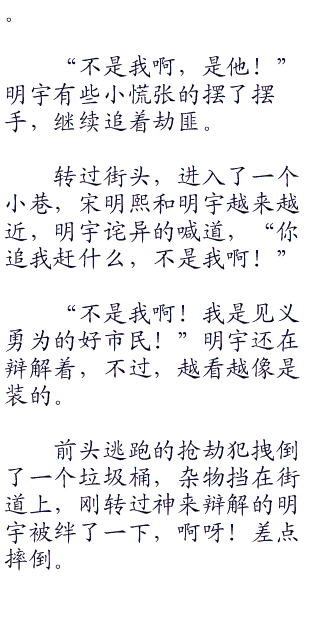 。
“不是我啊，是他！”
明宇有些小慌张的摆了摆
手，继续追着劫匪。
转过街头，进入了一个
小巷，宋明熙和明宇越来越
近，明宇诧异的喊道，“你
追我赶什么，不是我啊！”
“不是我啊！我是见义
勇为的好市民！”明宇还在
辩解着，不过，越看越像是
装的。
前头逃跑的抢劫犯拽倒
了一个垃圾桶，杂物挡在街
道上，刚转过神来辩解的明
宇被绊了一下，啊呀！差点
摔倒。